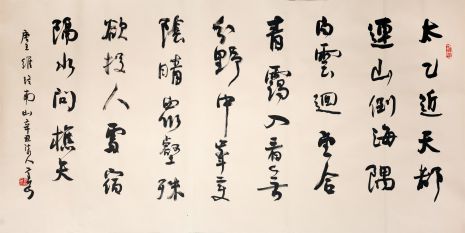 太乙近天都
連山倒海隅
白雲迴望合
青靄入看無
分野中峯變
陰晴眾壑殊
欲投人處宿
隔水問樵夫
唐王維終南山辛丑